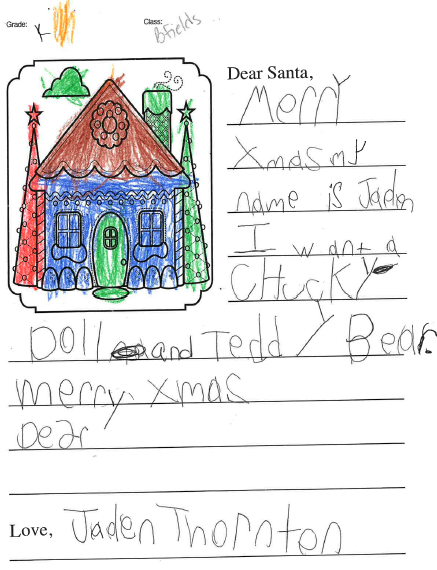 Grade: K
Class: Bfields
Dear Santa,
Merry
Xmas my
name is Jaden
I want a
CHucKY
Doll and Teddy Bear.
merry. xmas
Dear
Love, Jaden Thornton